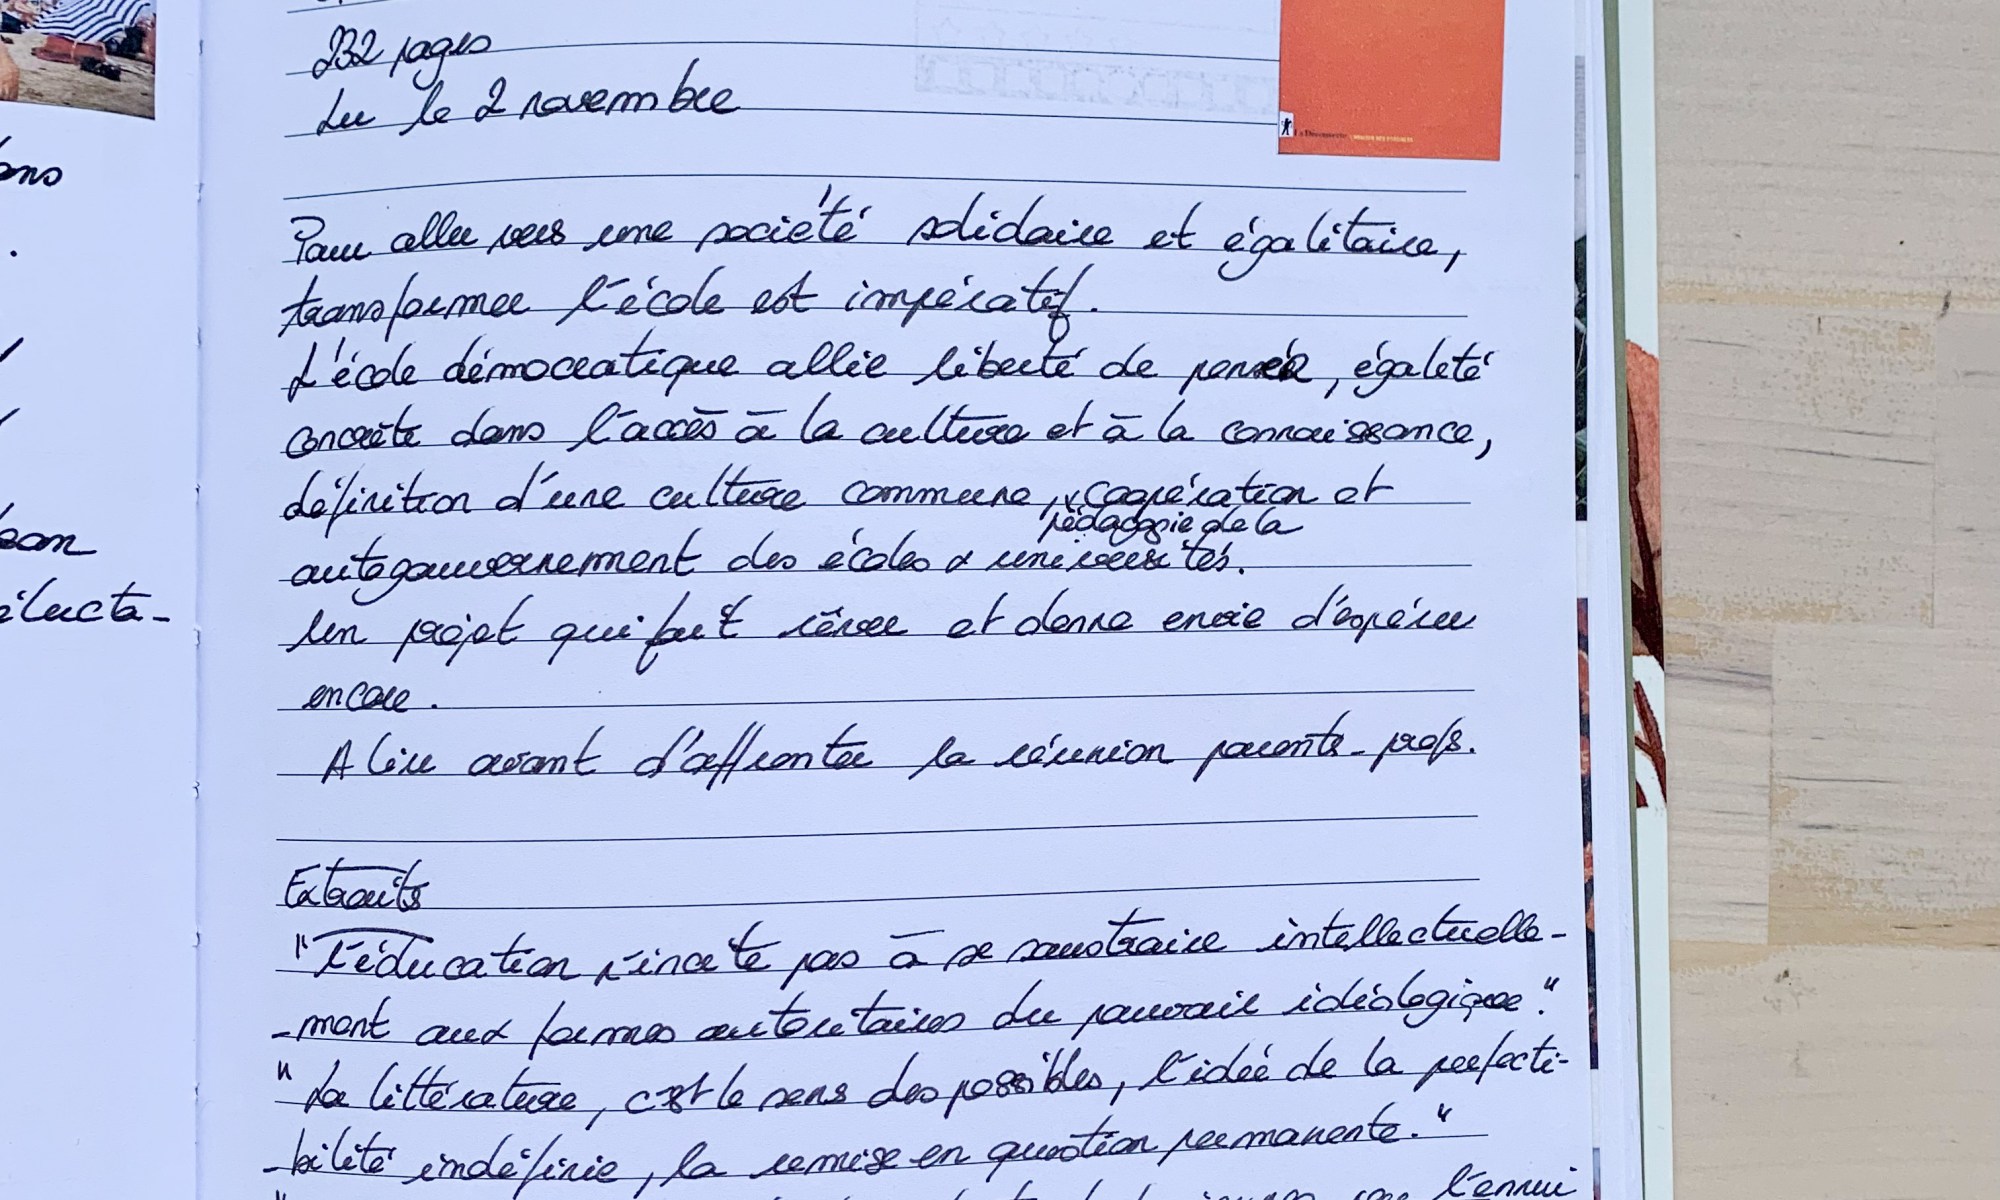 ans
.
ean
élucta-
232 pages
Lu le 2 novembre
La Découverte
Pour aller vers une société solidaire et égalitaire,
transformer l'école est impératif.
L'école démocratique allie liberté de pensée, égalité
concrète dans l'accès à la culture et à la connaissance,
définition d'une culture commune, x coopération et
pédagogie de la
autogouvernement des écoles & universités.
Un projet qui fait rêver et donne envie d'espérer
encore.
A lire avant d'affronter la réunion parents-profs.
Extraits
"L'éducation n'incite pas à se soustraire intellectuelle-
-ment aux formes autoritaires du pouvoir idéologique."
"La littérature, c'est le sens des possibles, l'idée de la perfecti-
-bilité indéfinie, la remise en question permanente."
l'ennui